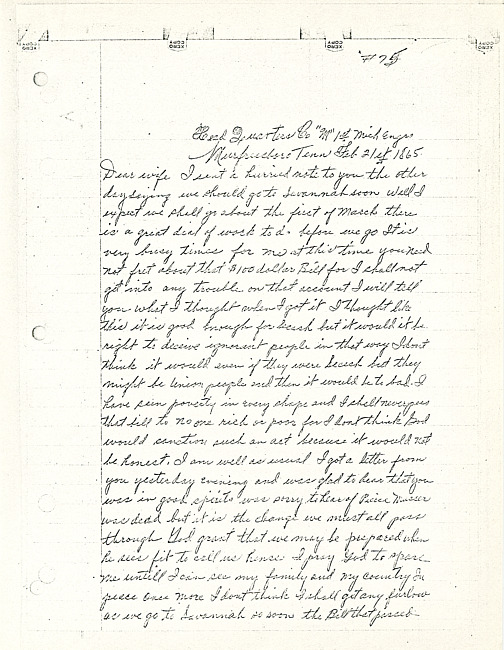 #75
Head Quarters Co "M" 1st Mich Engrs
Murfreesboro Tenn Feb 21st 1865
Dear wife I sent a hurried note to you the other
day saying we should go to Savannah soon well I
expect we shall go about the first of March there
is a great deal of work to do before we go It is
very busy times for me at this time you need
not fret about that $100 dollar Bill for I shall not
get into any trouble on that account I will tell
you what I thought when I got it I thought like
this it is good enough for Secesh but it would it be
right to deceive ignorent people in that way I dont
think it would even if they were Secesh but they
might be Union people and then it would be to bad. I
have seen poverty in every shape and I shall never pass
that bill to no one rich or poor for I dont think God
would sanction such an act because it would not
be honest. I am well as usual I got a letter from
you yesterday evening and was glad to hear that you
was in good spirits was sorry to hear of
was dead but it is the change we must all pass
through God grant that we may be prepared when
he sees fit to call us hence I pray God to spare
me untill I can see my family and my country in
peace once more I dont think I shall get any furlow
as we go to Savannah so soon the Bill that passed